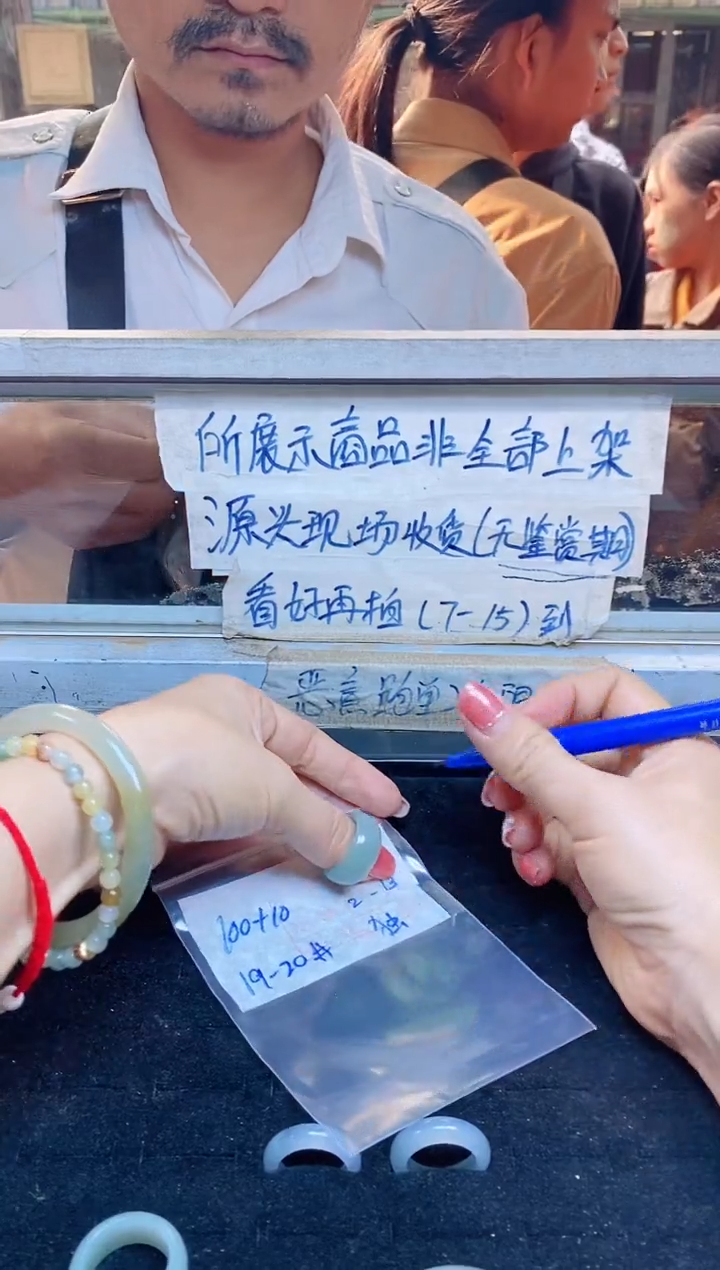 所展示商品非全部上架
源头现场收货(无鉴赏期)
看好再拍(7-15)到
恶意跑单
2-13
100+10
19-20#